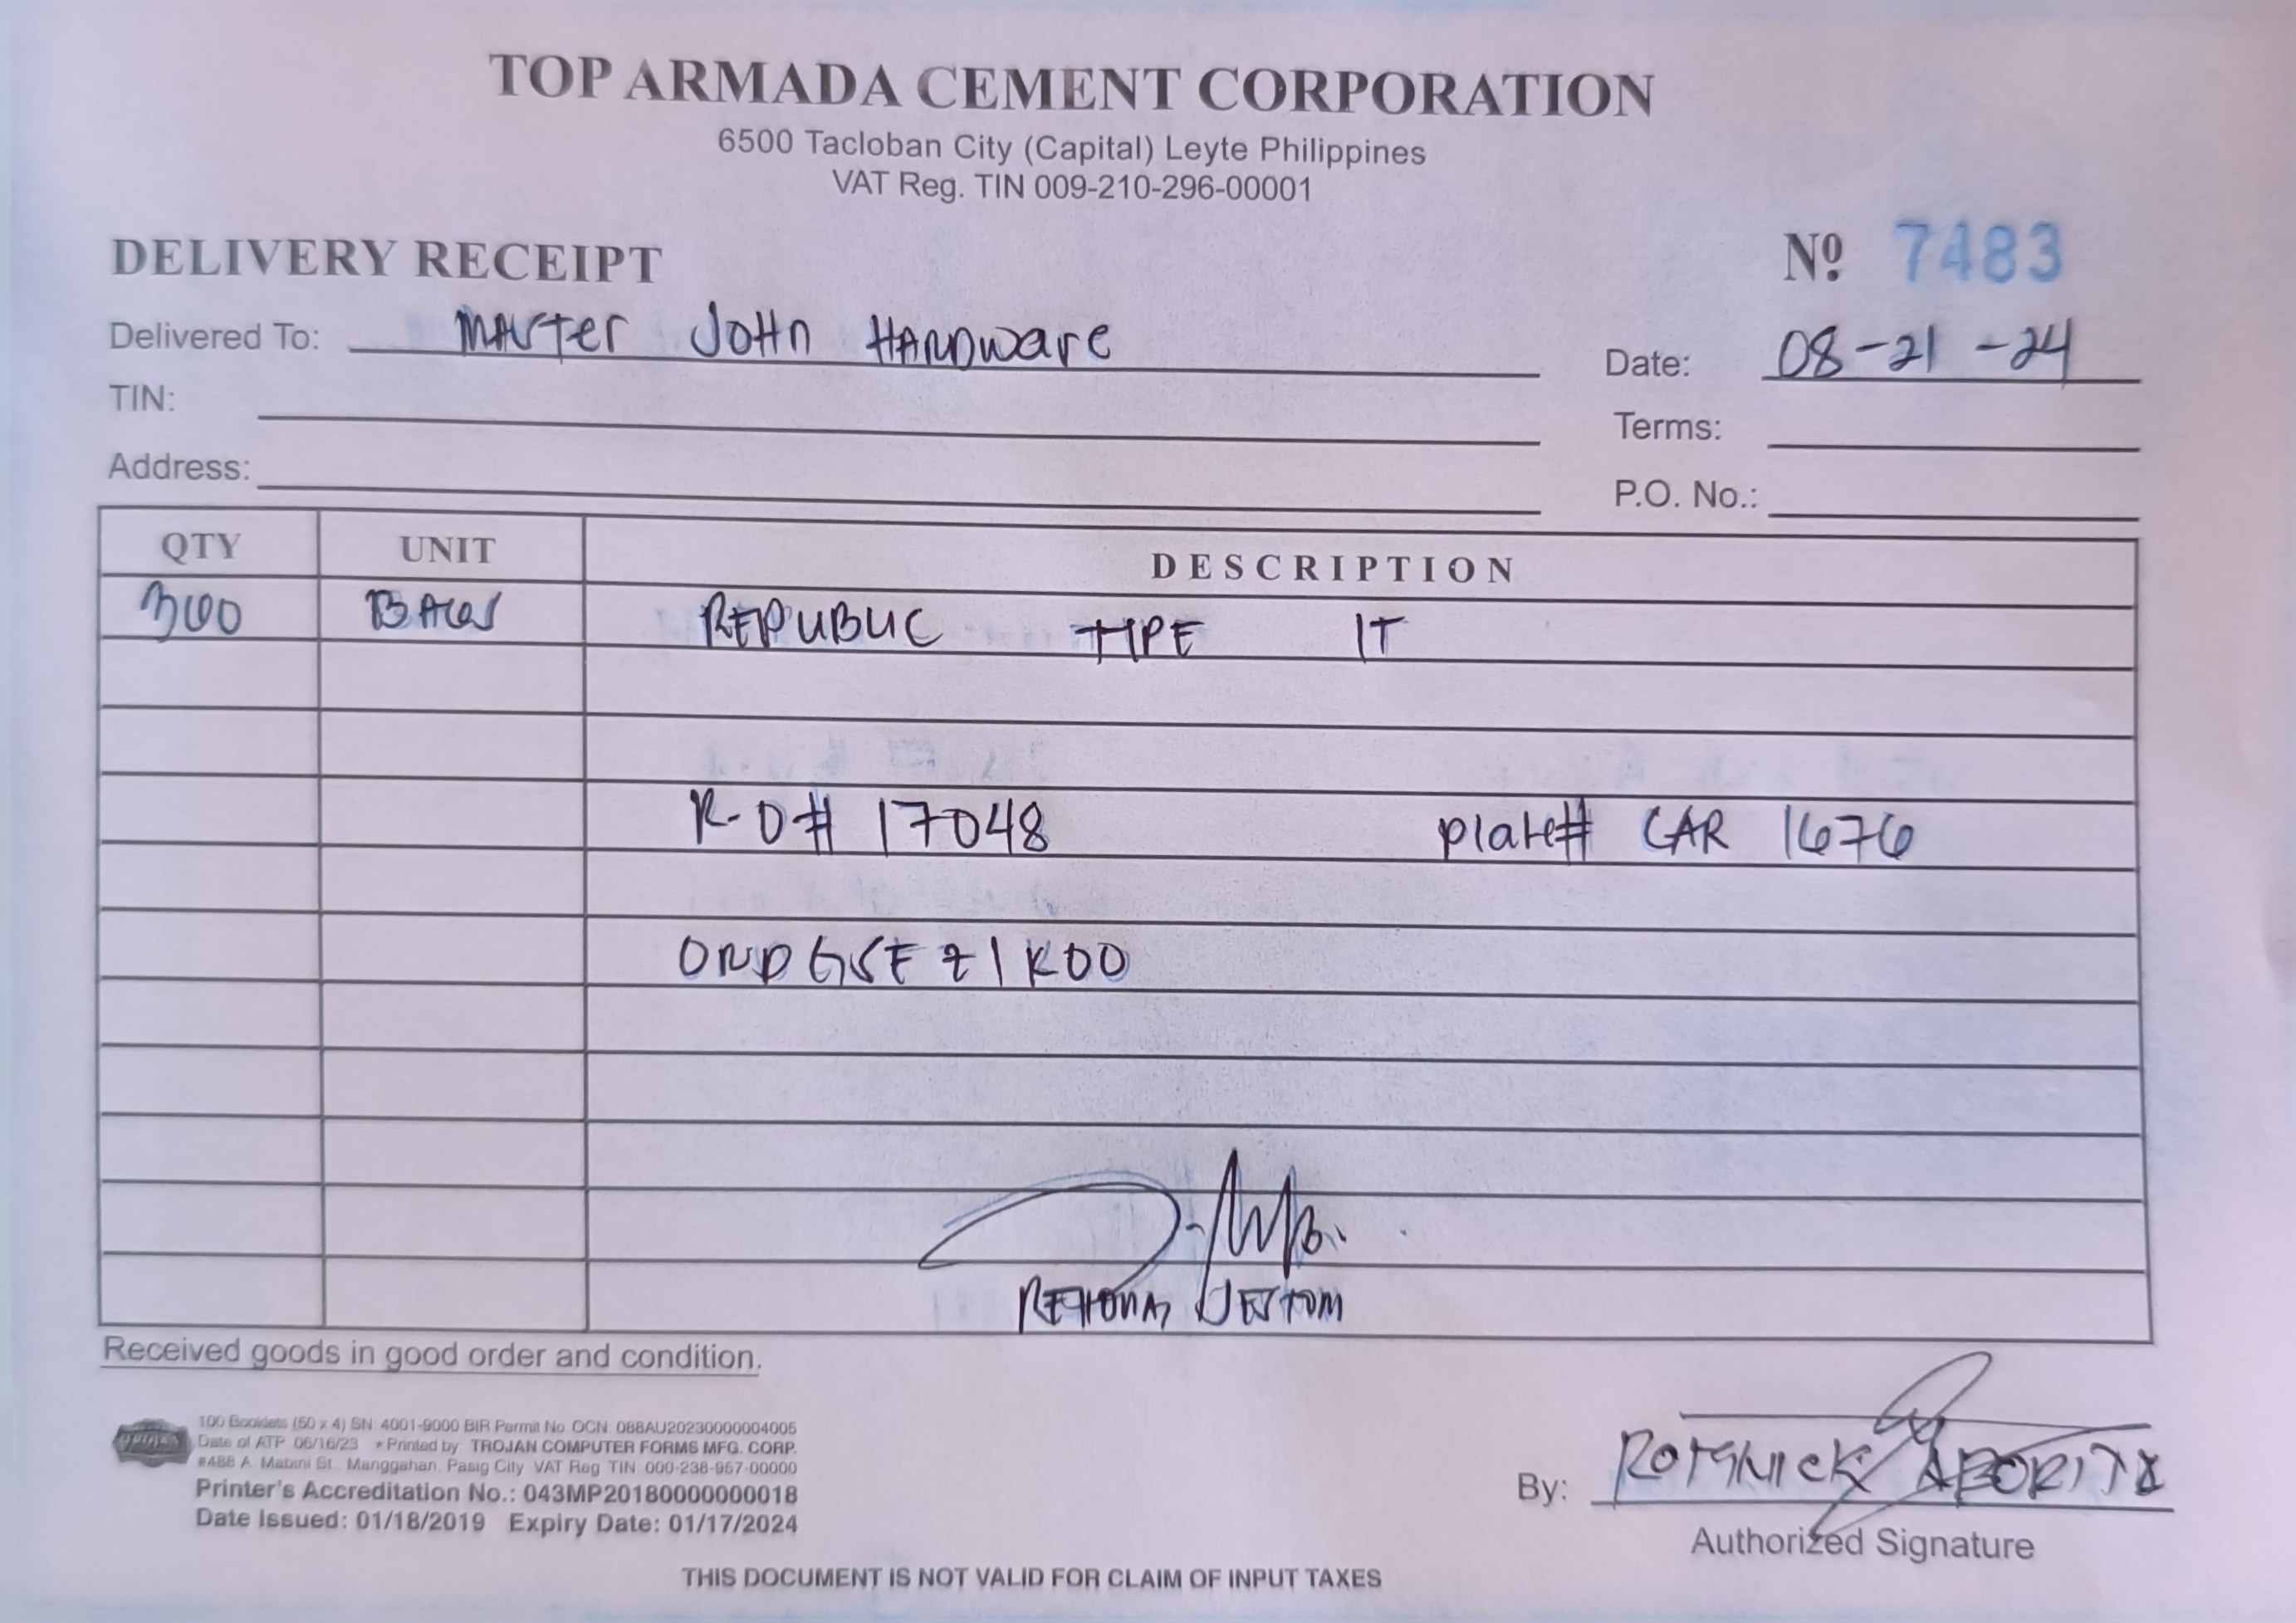 TOP ARMADA CEMENT CORPORATION
6500 Tacloban City (Capital) Leyte Philippines
VAT Reg. TIN 009-210-296-00001
DELIVERY RECEIPT
Nº 7483
Delivered To: MASTER JOHN HARDWARE
Date: 08-21-24
TIN:
Terms:
Address:
P.O. No.:
QTY UNIT DESCRIPTION
300 BAGS REPUBLIC TYPE 1T
R-O# 17048 plate# CAR 1676
Received goods in good order and condition.
100 Booklets (50 x 4) SN: 4001-9000 BIR Permit No. OCN: 088AU20230000004005
Date of ATP 06/16/23 * Printed by TROJAN COMPUTER FORMS MFG. CORP.
#488 A. Mabini St., Manggahan, Pasig City VAT Reg TIN 000-238-957-00000
Printer's Accreditation No.: 043MP20180000000018
Date Issued: 01/18/2019 Expiry Date: 01/17/2024
By:
Authorized Signature
THIS DOCUMENT IS NOT VALID FOR CLAIM OF INPUT TAXES